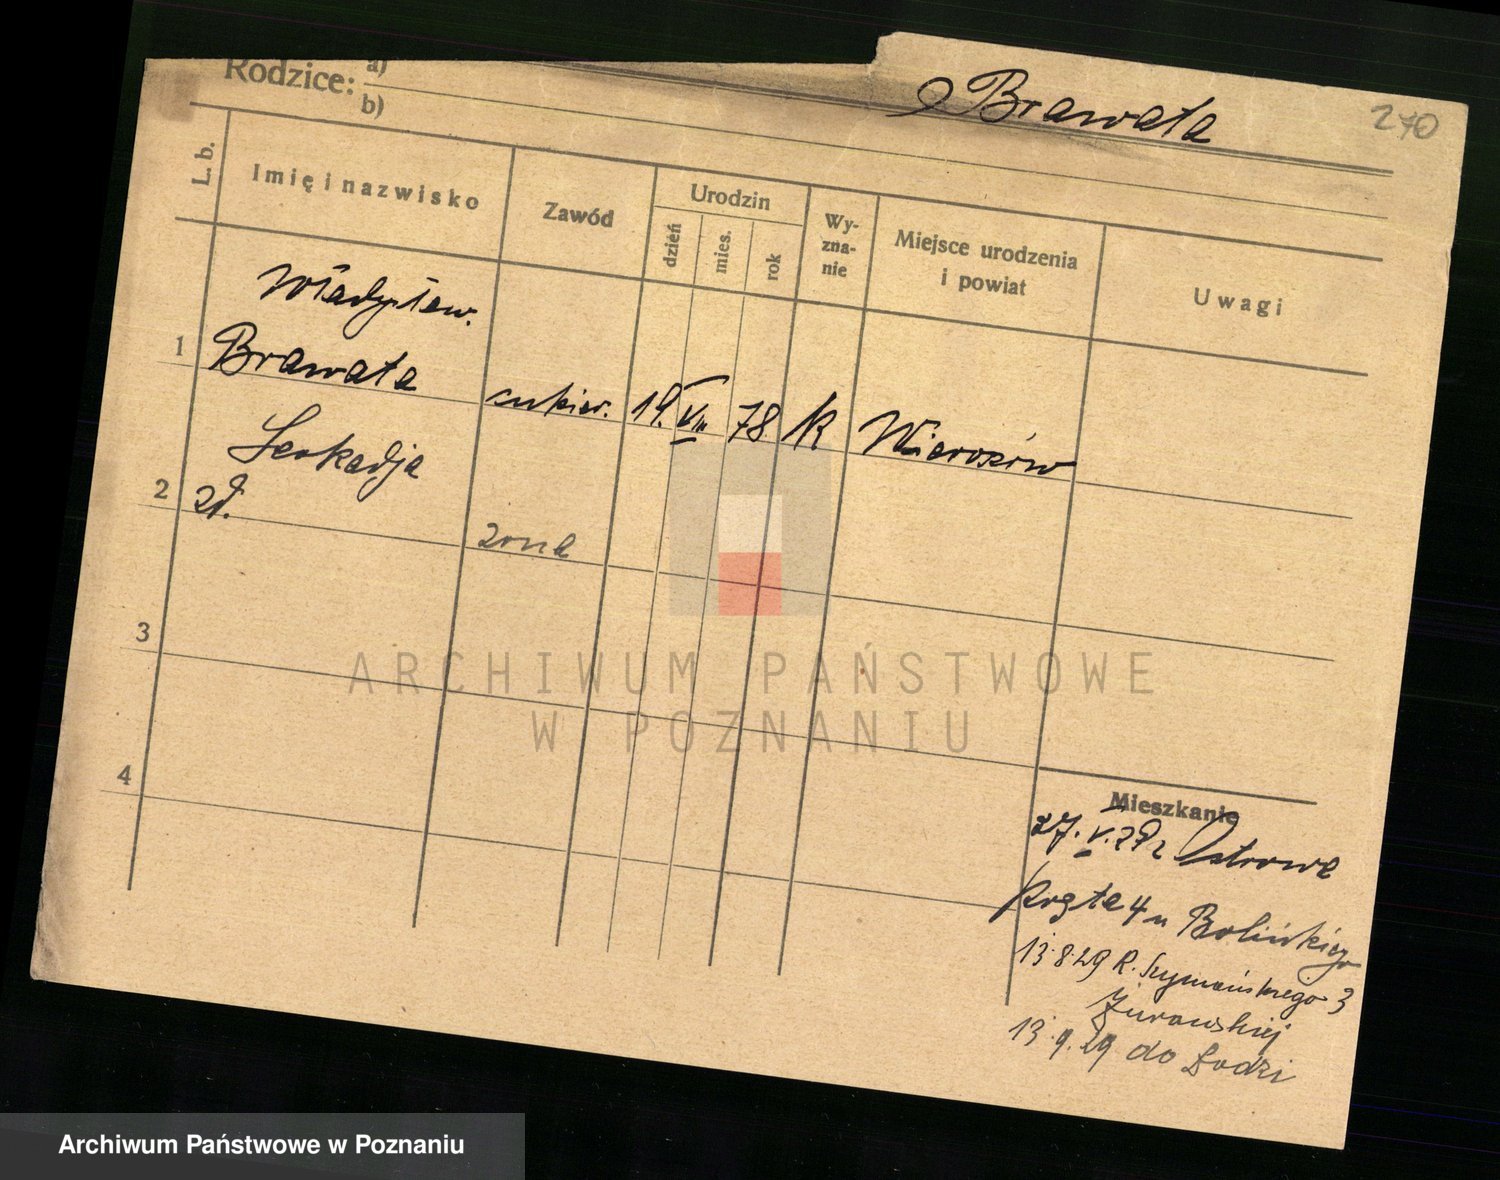 Rodzice: a)
b)
Brawata
270
L. b.
Imię i nazwisko
Zawód
Urodzin
dzień
mies.
rok
Wy-
zna-
nie
Miejsce urodzenia
i powiat
Uwagi
Władysław.
1 Brawata cukier. 19. VIII 78 k Wieruszów
Leokadja
2
żona
3
4
ARCHIWUM PAŃSTWOWE
W POZNANIU
Mieszkanie
27. V. 29 z Ostrowa
4 u Bolińskiego
13.8.29 R. Szymańskiego 3
Żurawskiej
13.9.29 do Łodzi
Archiwum Państwowe w Poznaniu